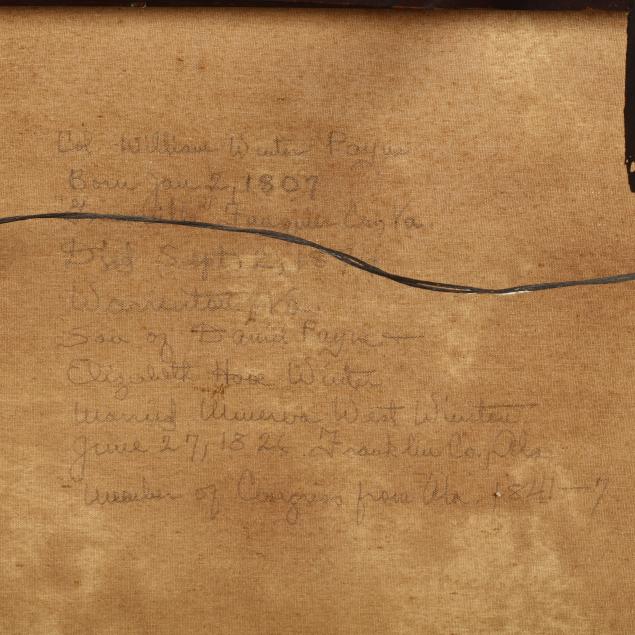 Col. William Winter Payne
Born Jan 2, 1807
Fauquier Co, Va.
Died Sept. 2, 18
Warrenton, Va.
Son of Daniel Payne —
Elizabeth Hooe Winter
Married Minerva West Winston
June 27, 1826. Franklin Co, Ala
Member of Congress from Ala. 1841—7